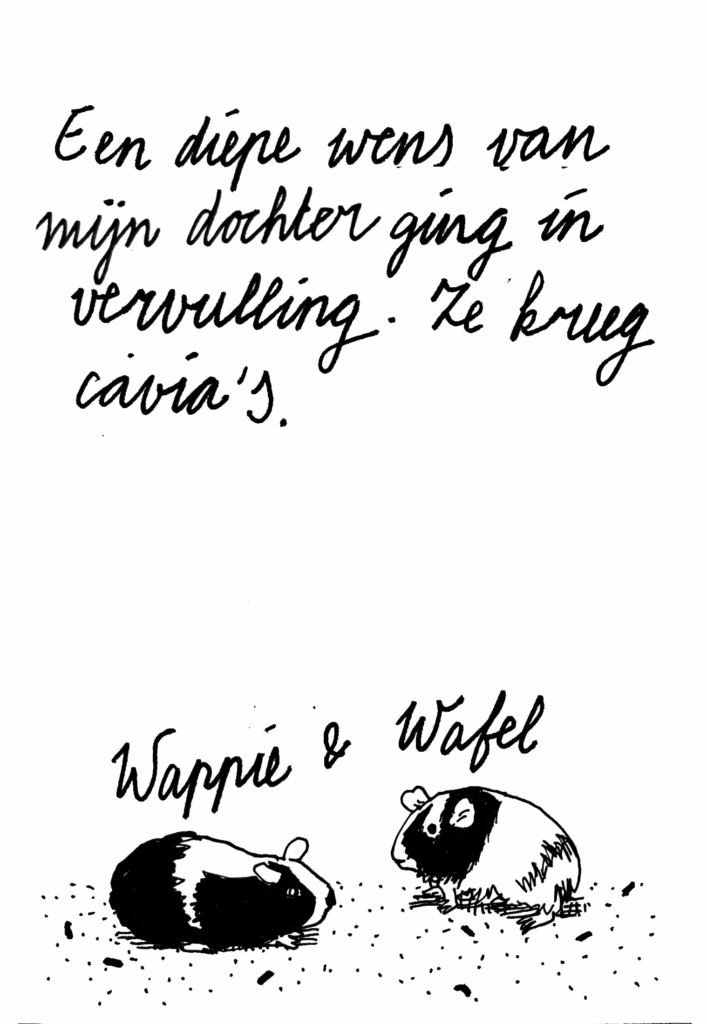 Een diepe wens van
mijn dochter ging in
vervulling. Ze kreeg
cavia's.
Wappie & Wafel